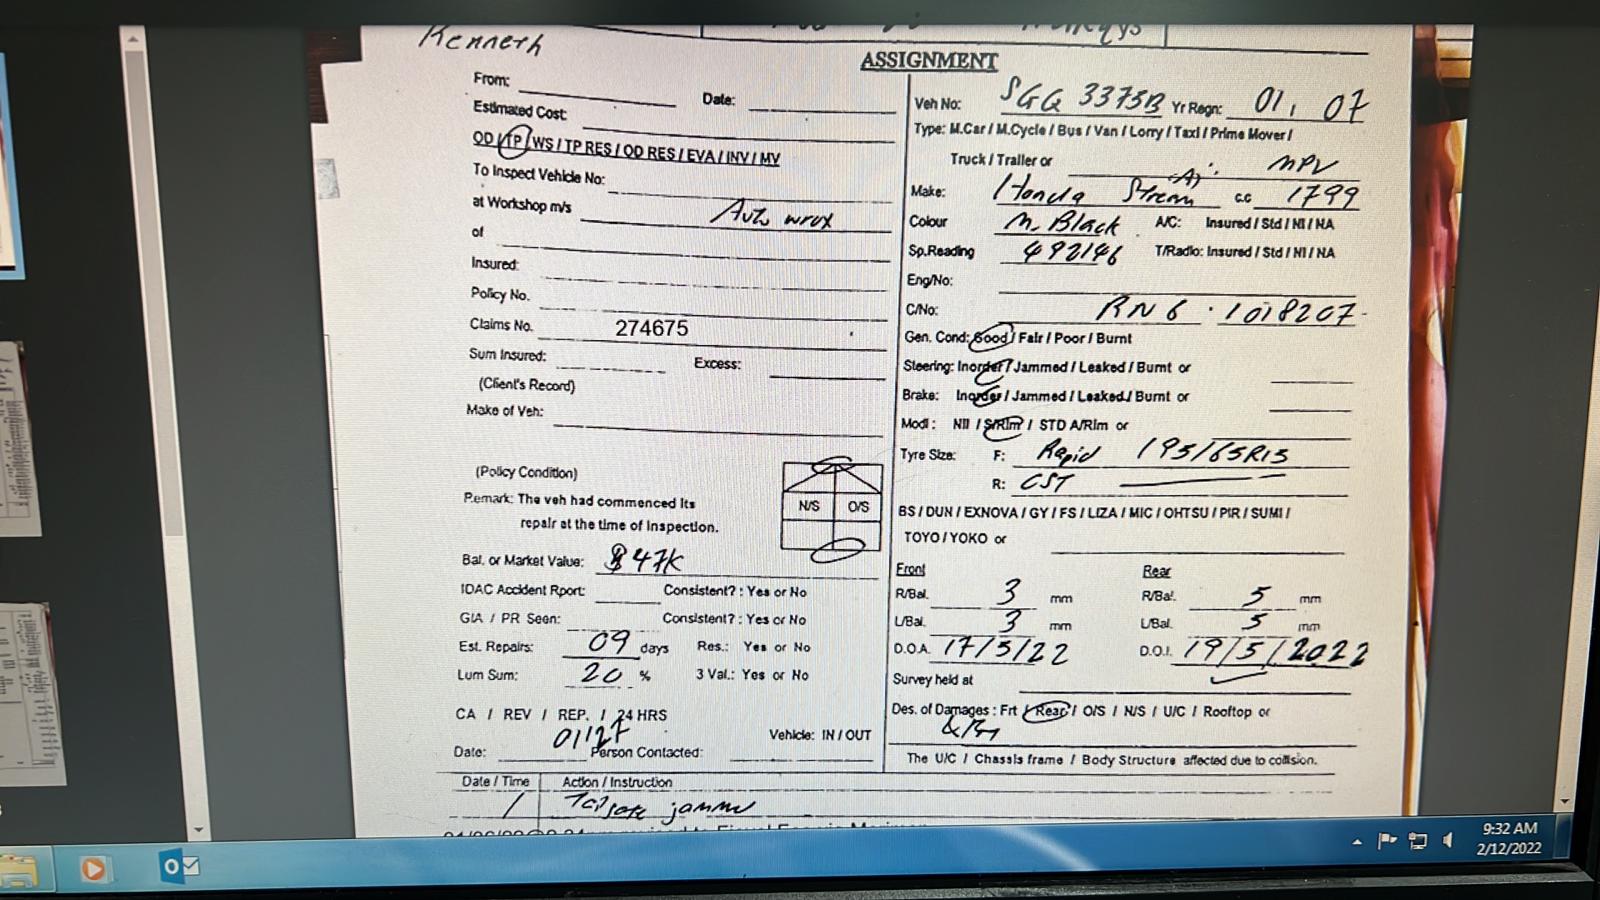 Kenneth
ASSIGNMENT
From:
Date:
Estimated Cost:
OD / TP / WS / TP RES / OD RES / EVA / INV / MV
To Inspect Vehicle No:
at Workshop m/s Auto wrox
of
Insured:
Policy No.
Claims No. 274675
Sum Insured: Excess:
(Client's Record)
Make of Veh:
(Policy Condition)
Remark: The veh had commenced its
repair at the time of inspection.
N/S O/S
Bal. or Market Value: $47K
IDAC Accident Rport: Consistent? : Yes or No
GIA / PR Seen: Consistent? : Yes or No
Est. Repairs: 09 days Res.: Yes or No
Lum Sum: 20 % 3 Val.: Yes or No
CA / REV / REP. / 24 HRS
Vehicle: IN / OUT
Date: Person Contacted:
Date / Time Action / Instruction
Veh No: SGQ 3375B Yr Regn: 01, 07
Type: M.Car / M.Cycle / Bus / Van / Lorry / Taxi / Prime Mover /
Truck / Trailer or MPV
Make: Honda Stream (A) c.c 1799
Colour M. Black A/C: Insured / Std / NI / NA
Sp.Reading 492146 T/Radio: Insured / Std / NI / NA
Eng/No:
C/No: RN6 · 1018207
Gen. Cond: Good / Fair / Poor / Burnt
Steering: Inorder / Jammed / Leaked / Burnt or
Brake: Inorder / Jammed / Leaked / Burnt or
Modi : Nil / S/Rim / STD A/Rim or
Tyre Size: F: Rapid 195/65R15
R: CST
BS / DUN / EXNOVA / GY / FS / LIZA / MIC / OHTSU / PIR / SUMI /
TOYO / YOKO or
Front Rear
R/Bal. 3 mm R/Bal. 5 mm
L/Bal. 3 mm L/Bal. 5 mm
D.O.A. 17/5/22 D.O.I. 19/5/2022
Survey held at
Des. of Damages : Frt / Rear / O/S / N/S / U/C / Rooftop or
The U/C / Chassis frame / Body Structure affected due to collision.
9:32 AM
2/12/2022